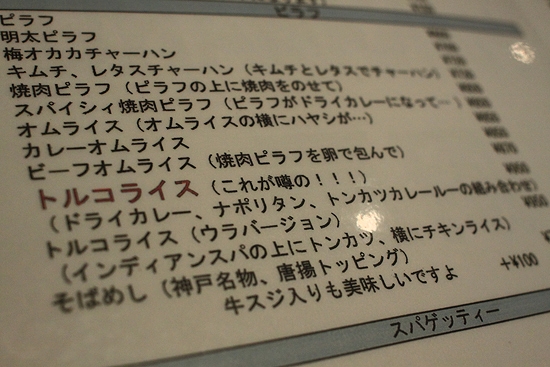 ピラフ
ピラフ
明太ピラフ
梅オカカチャーハン
キムチ、レタスチャーハン（キムチとレタスでチャーハン）
焼肉ピラフ（ピラフの上に焼肉をのせて）
スパイシィ焼肉ピラフ（ピラフがドライカレーになって…）
オムライス（オムライスの横にハヤシが…）
カレーオムライス
ビーフオムライス（焼肉ピラフを卵で包んで）
トルコライス（これが噂の！！！）
（ドライカレー、ナポリタン、トンカツカレールーの組み合わせ）
トルコライス（ウラバージョン）
（インディアンスパの上にトンカツ、横にチキンライス）
そばめし（神戸名物、唐揚トッピング）
牛スジ入りも美味しいですよ +¥100
スパゲッティー